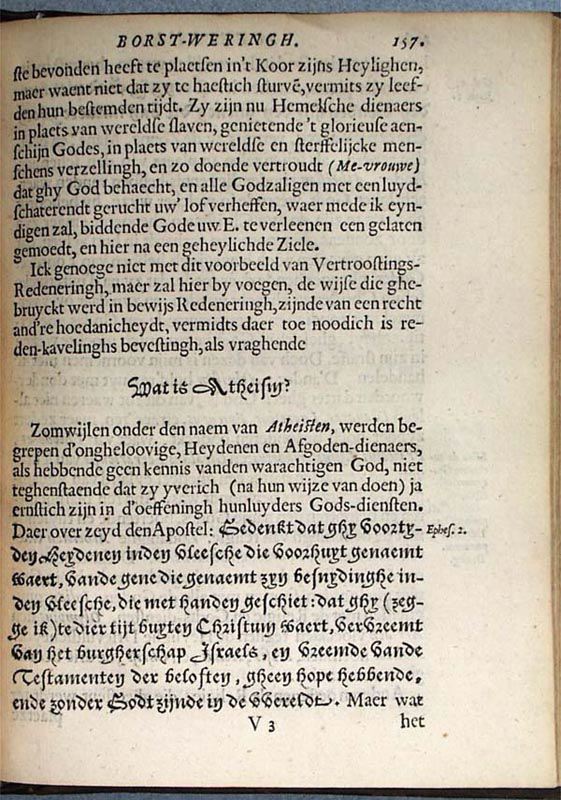 BORST-WERINGH. 157.
ste bevonden heeft te plaetsen in't Koor zijns Heylighen,
maer waent niet dat zy te haestich sturvē, vermits zy leef-
den hun bestemden tijdt. Zy zijn nu Hemelsche dienaers
in plaets van wereldse slaven, genietende 't glorieuse aen-
schijn Godes, in plaets van wereldse en sterffelijcke men-
schens verzellingh, en zo doende vertroudt (Me-vrouwe)
dat ghy God behaecht, en alle Godzaligen met een luyd-
schaterendt gerucht uw' lof verheffen, waer mede ik eyn-
digen zal, biddende Gode uw E. te verleenen een gelaten
gemoedt, en hier na een geheylichde Ziele.
Ick genoege niet met dit voorbeeld van Vertroostings-
Redeneringh, maer zal hier by voegen, de wijse die ghe-
bruyckt werd in bewijs Redeneringh, zijnde van een recht
and're hoedanicheydt, vermidts daer toe noodich is re-
den-kavelinghs bevestingh, als vraghende
Wat is Atheism?
Zomwijlen onder den naem van Atheisten, werden be-
grepen d'ongheloovige, Heydenen en Afgoden-dienaers,
als hebbende geen kennis vanden warachtigen God, niet
teghenstaende dat zy yverich (na hun wijze van doen) ja
ernstich zijn in d'oeffeningh hunluyders Gods-diensten.
Daer over zeyd den Apostel: Gedenkt dat ghy voorty- Ephes. 2.
den Heydenen inden vleesche die voorhuyt genaemt
waert, vande gene die genaemt zyn besnydinghe in-
den vleesche, die met handen geschiet: dat ghy (zeg-
ge ik) te dier tijt buyten Christum waert, vervreemt
van het burgherschap Israels, en vreemde vande
Testamenten der beloften, gheen hope hebbende,
ende zonder Godt zijnde in de Wereldt. Maer wat
V 3 het